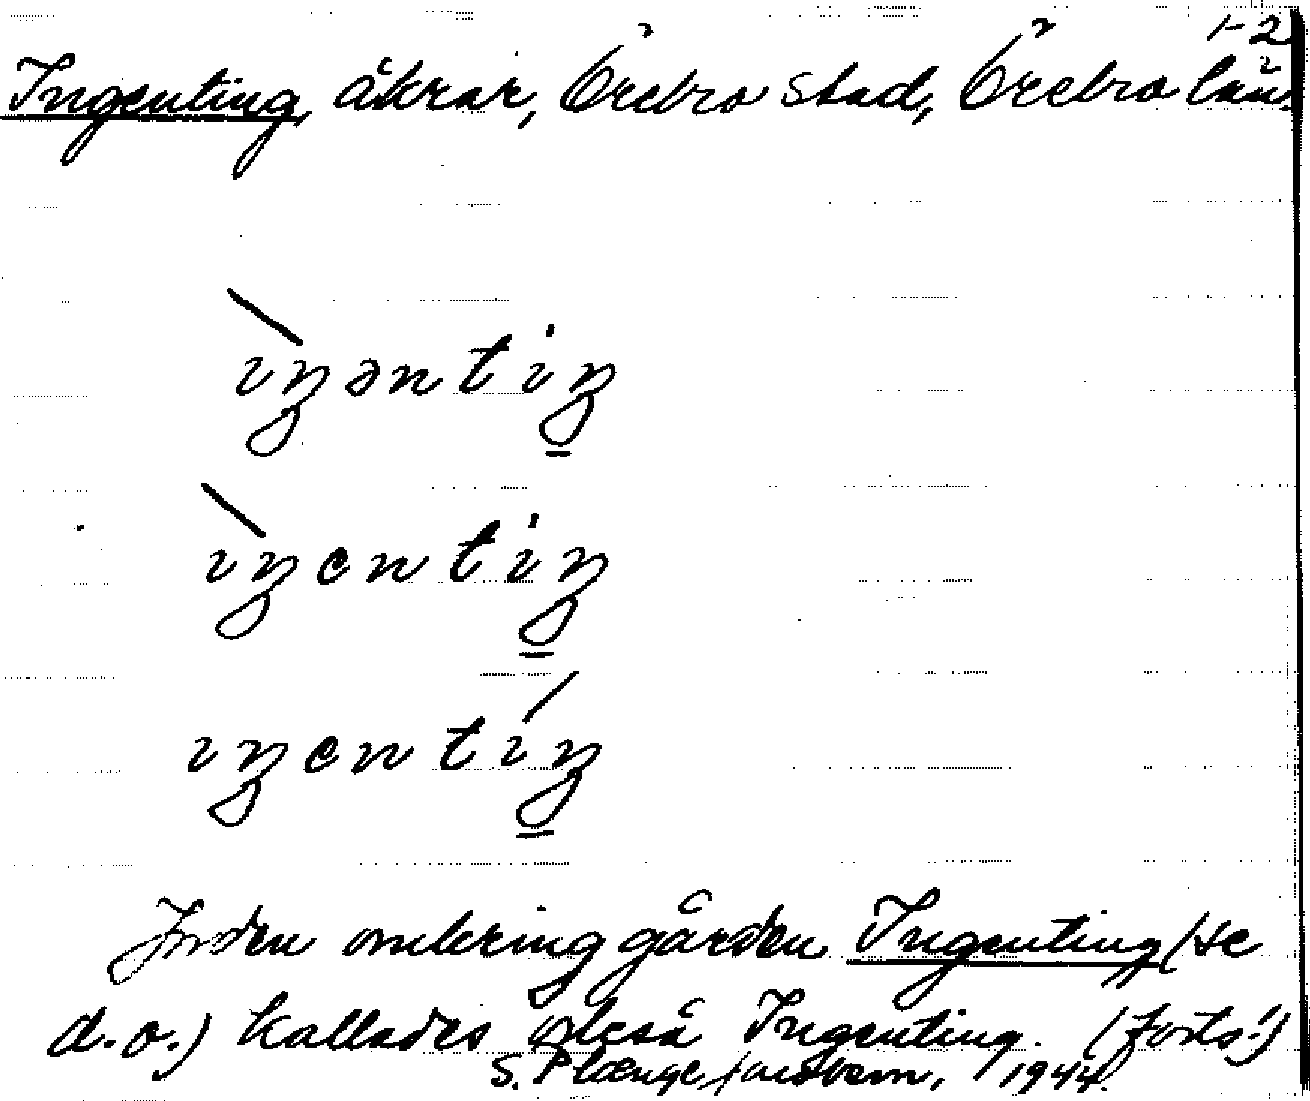 1-2
Ingenting, åkrar, Örebro stad, Örebro län
ìŋəntiŋ
ìŋentiŋ
ıŋentíŋ
Jorden omkring gården Ingenting (se
d.o.) kallades också Ingenting. (Forts.)
S. Plænge Jacobson, 1944.